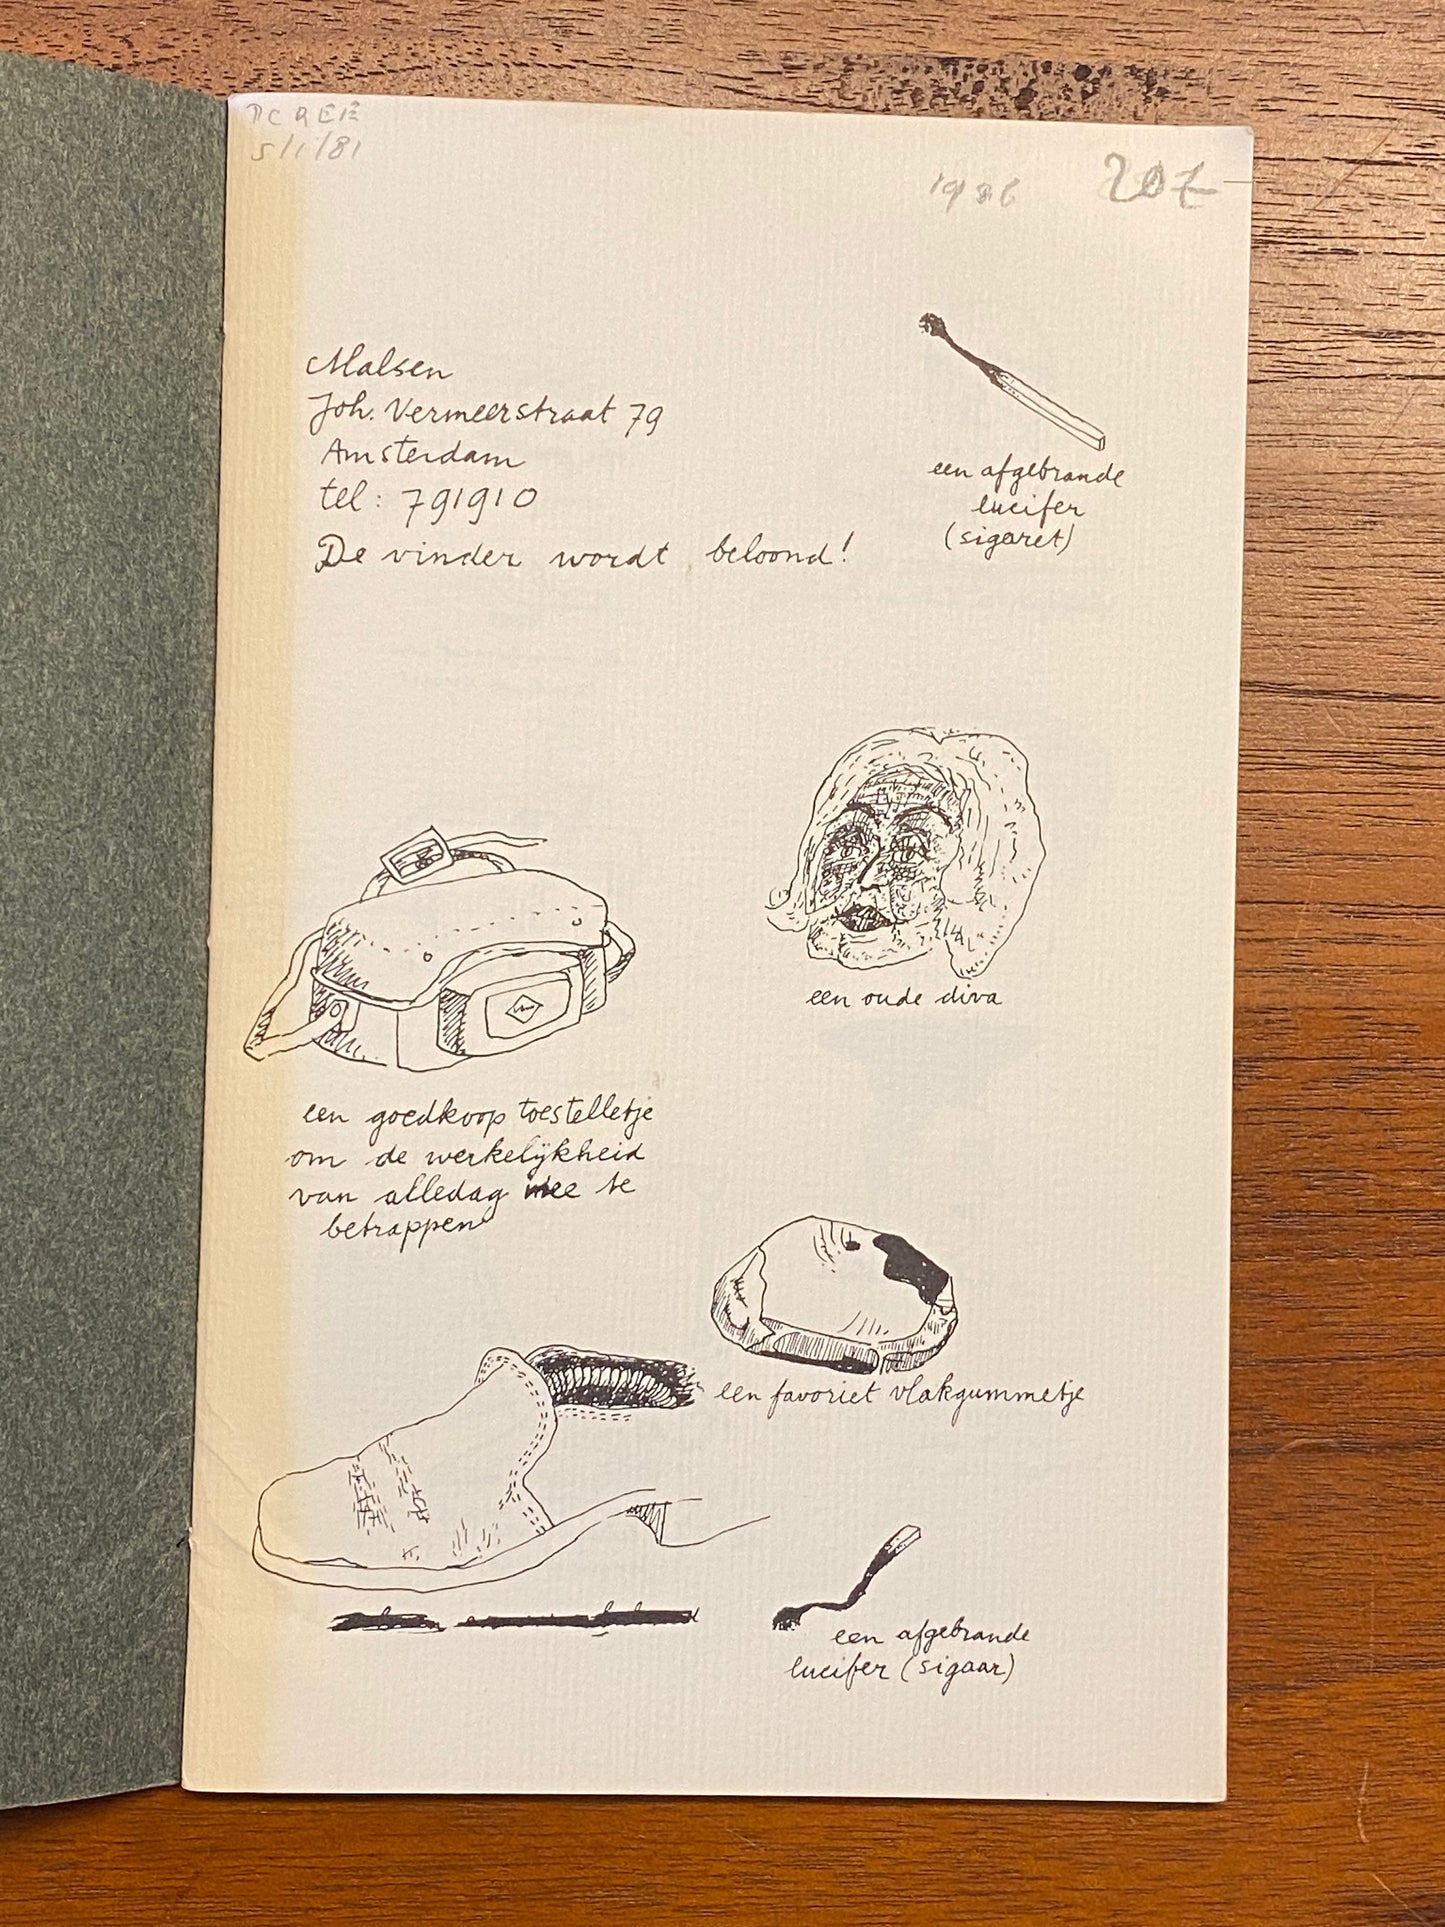 5/1/81
207
Malsen
Joh. Vermeerstraat 79
Amsterdam
tel: 791910
De vinder wordt beloond!
een afgebrande
lucifer
(sigaret)
een oude diva
een goedkoop toestelletje
om de werkelijkheid
van alledag mee te
betrappen
een favoriet vlakgummetje
een afgebrande
lucifer (sigaar)